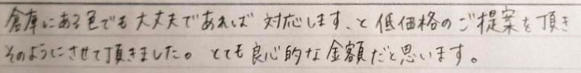 倉庫にある色でも大丈夫であれば 対応します、と 低価格のご提案を頂き
そのようにさせて頂きました。 とても良心的な金額だと思います。